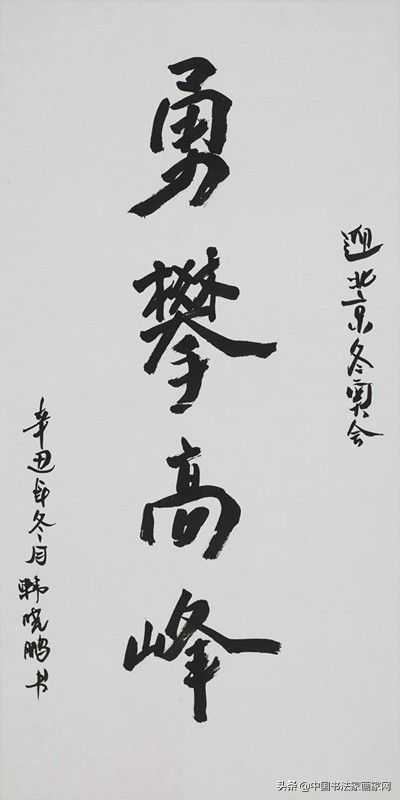 迎北京冬奥会
勇攀高峰
辛丑年冬月韩晓鹏书
头条@中国书法家画家网